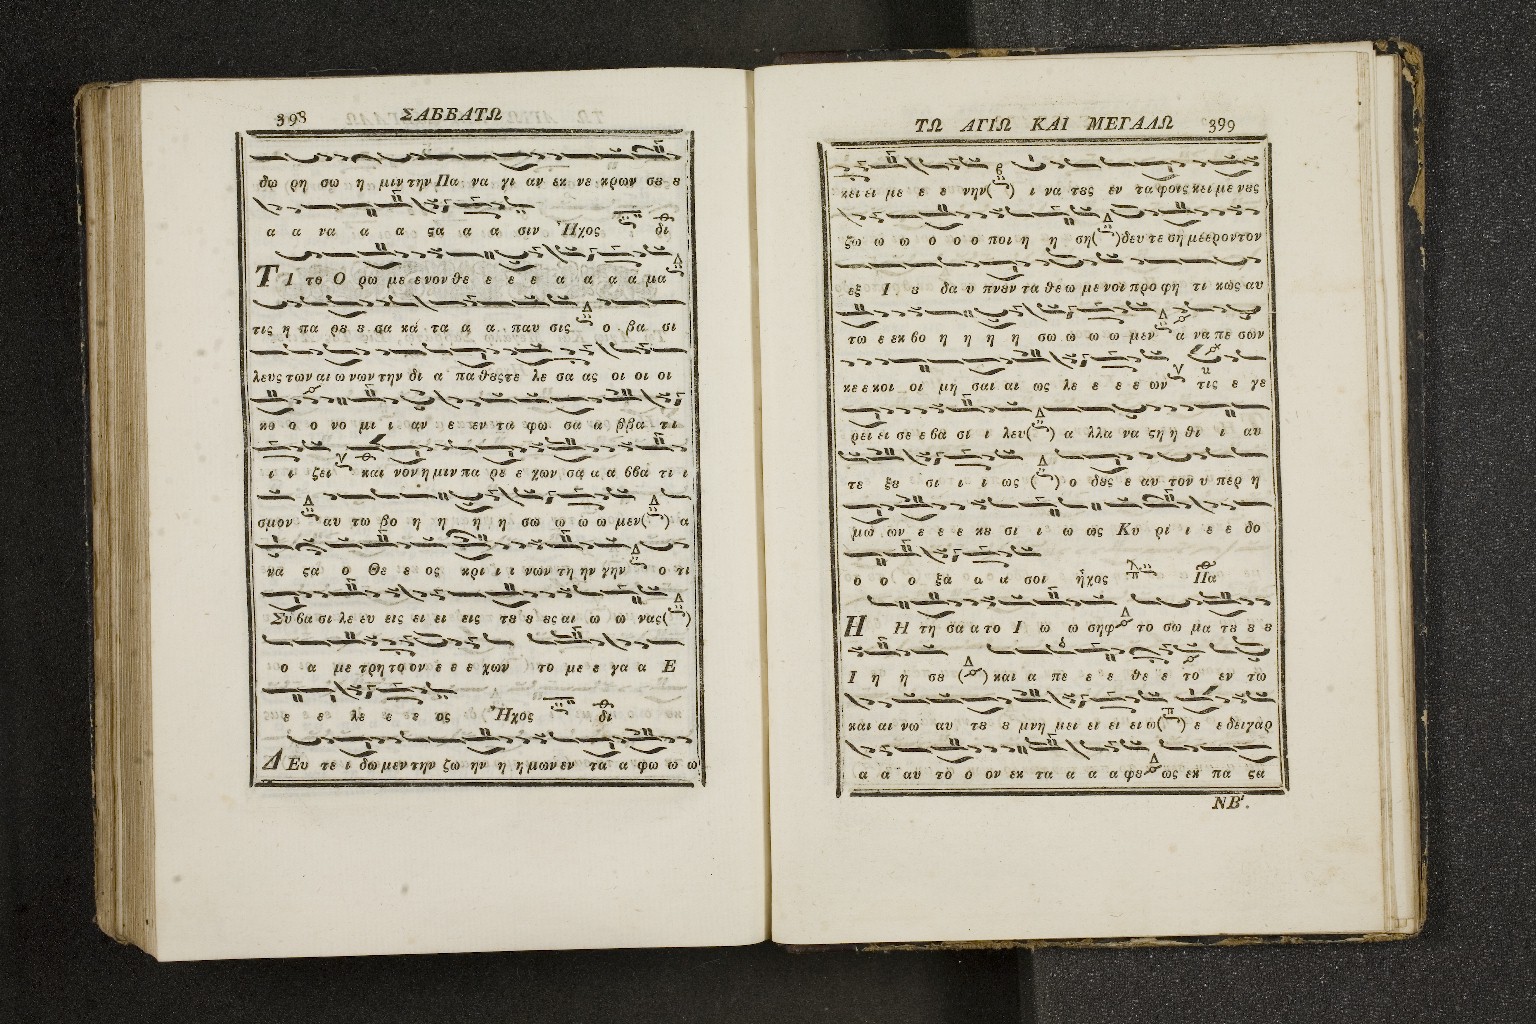 398
ΣΑΒΒΑΤΩ
δω ρη σω η μιν την Πα να γι αν εκ νε κρων σȣ ȣ
α α να α α ϛα α α σιν Ἦχος δι
ΤΙ το Ο ρω με ε νον θε ε ε ε α α α α μα
τις η πα ρȣ ȣ σα κά τα α α παυ σις ο βα σι
λευς των αι ω νων την δι α πα θȣς τε λε σα ας οι οι οι
κο ο ο νο μι ι αν ε εν τα φω σα α ββα τι
ι ι ζει και νον η μιν πα ρε ε χων σα α α ββα τι ι
σμον αυ τω βο η η η η σω ω ω ω μεν( ) α
νά ϛα ο Θε ε ος κρι ι ι νων τη ην γην ο τι
Συ βα σι λε ευ εις ει ει εις τȣ ȣ ȣς αι ω ω νας( )
ο α με τρη το ον ε ε ε χων το με ε γα α Ε
ε ε ε λε ε ε ε ος Ἦχος δι
ΔΕυ τε ι δω μεν την ζω ην η η μων εν τα α φω ω ω
ΤΩ ΑΓΙΩ ΚΑΙ ΜΕΓΑΛΩ 399
κει ει με ε ε νην( ) ι να τȣς εν τα φοις κει με νȣς
ζω ω ω ο ο ο ποι η η ση( )δευ τε ση μέερον τον
εξ Ι ȣ δα υ πνȣν τα θε ω με νοι προ φη τι κως αυ
τω ε εκ βο η η η η σω ω ω ω μεν α να πε σων
κε ε κοι οι μη σαι αι ως λε ε ε ε ων τις ε γε
ρει ει σε ε βα σι ι λευ( ) α λλα να ϛη η θι ι αυ
τε ξȣ σι ι ι ως ( ) ο δȣς ε αυ τον υ περ η
μω ων ε ε ε κȣ σι ι ω ως Κυ ρι ι ε ε δο
ο ο ο ξα α α σοι ἦχος Πα
Η Η τη σα α το Ι ω ω σηφ το σω μα τȣ ȣ ȣ
Ι η η σȣ ( ) και α πε ε ε θε ε το εν τω
και αι νω αυ τȣ ȣ μνη μει ει ει ει ω( ) ε ε δει γαρ
α α αυ το ο ον εκ τα α α α φȣ ως εκ πα ϛα
ΝΒ'.